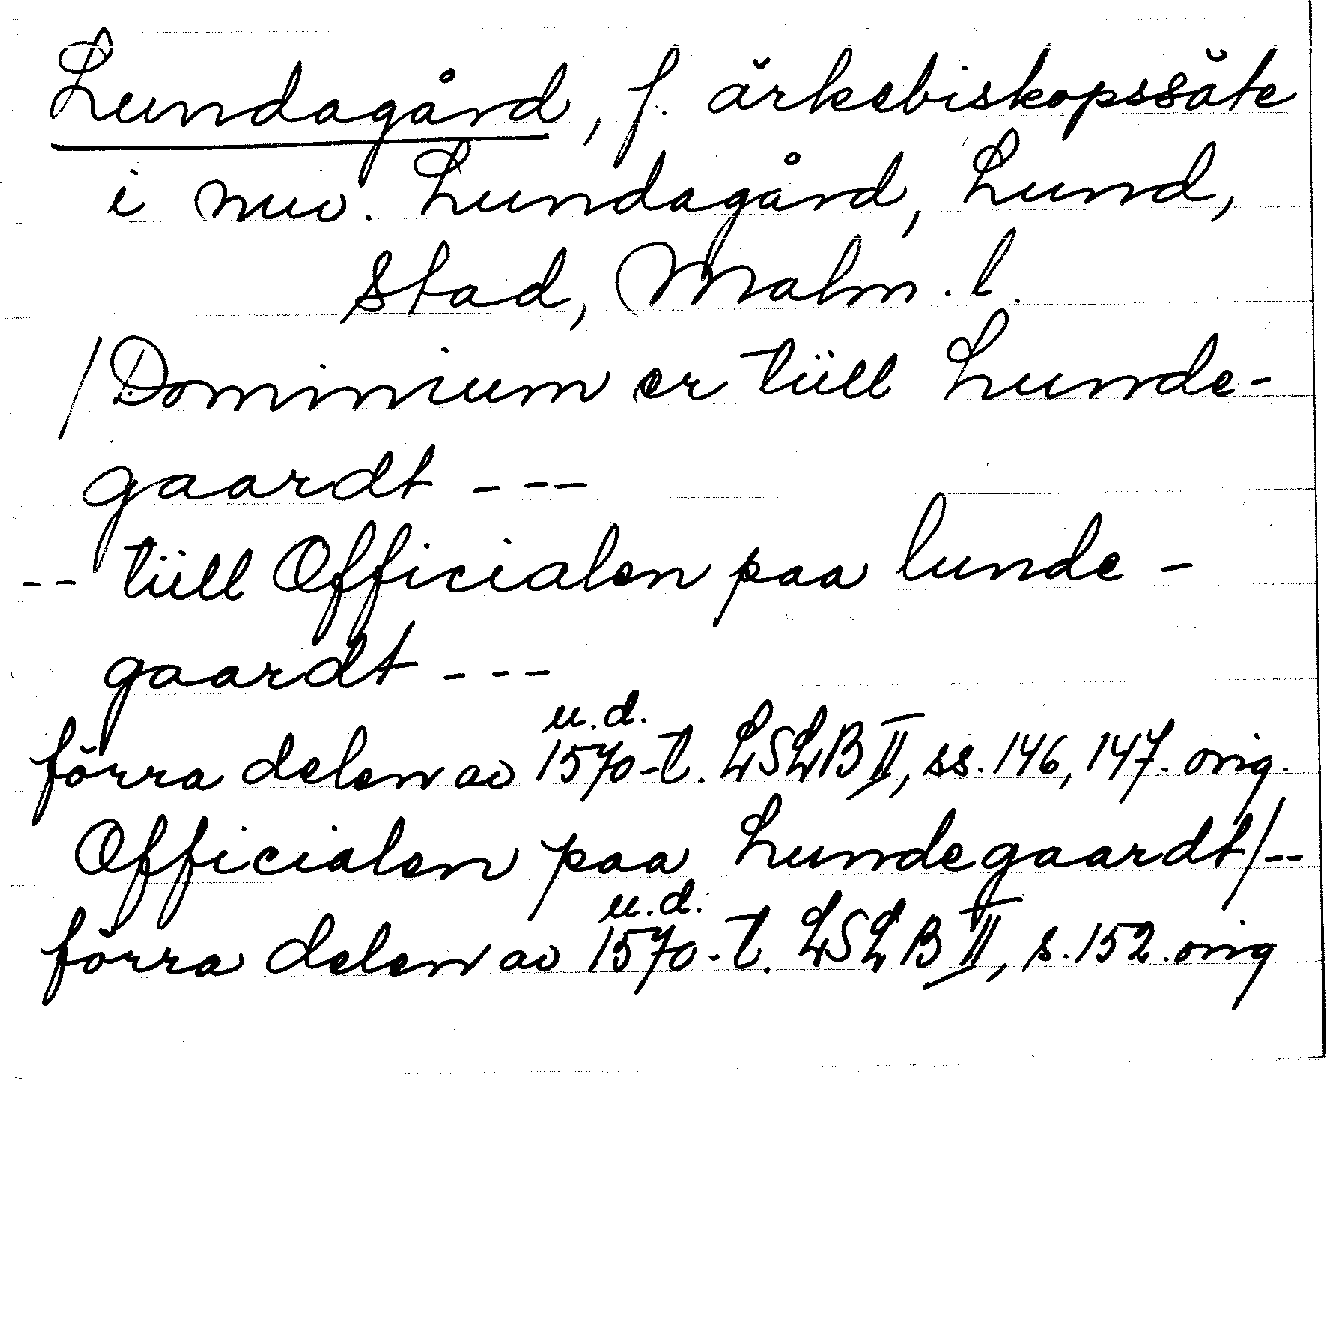 Lundagård, f. ärkebiskopssäte
i nuv. Lundagård, Lund,
stad, Malm. l.
/Dominium er tüll Lunde-
gaardt ---
-- tüll Officialen paa lunde-
gaardt ---
u.d.
förra delen av 1570-t. LSLB II, ss. 146, 147. orig.
Officialen paa Lundegaardt/--
u.d.
förra delen av 1570-t. LSLB II, s. 152. orig